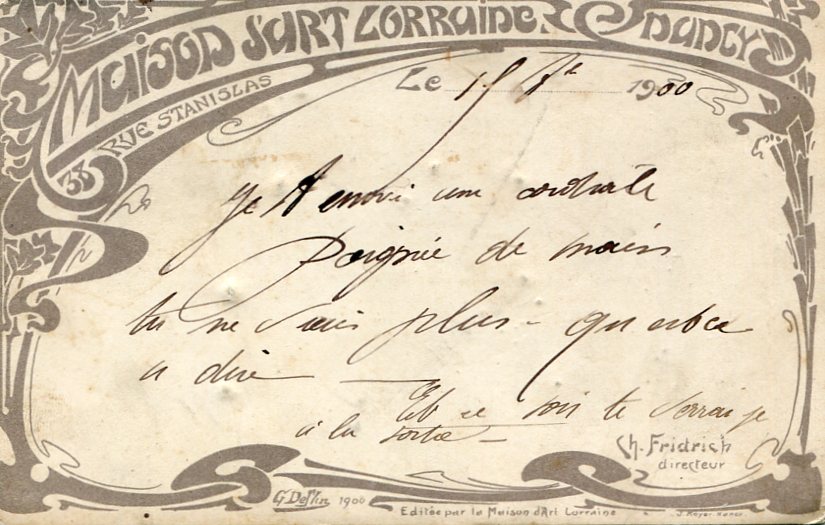 MAISON D'ART LORRAINE. NANCY
38 RUE STANISLAS
Le 15 7e 1900
Je t'envoi une cordiale
Poignée de main
tu ne plus - qu'est ce
a dire —
Est ce soir te verrai je
à la sortie —
Ch. Fridrich
directeur
1900
Editée par la Maison d'Art Lorraine
J. Royer. Nancy.